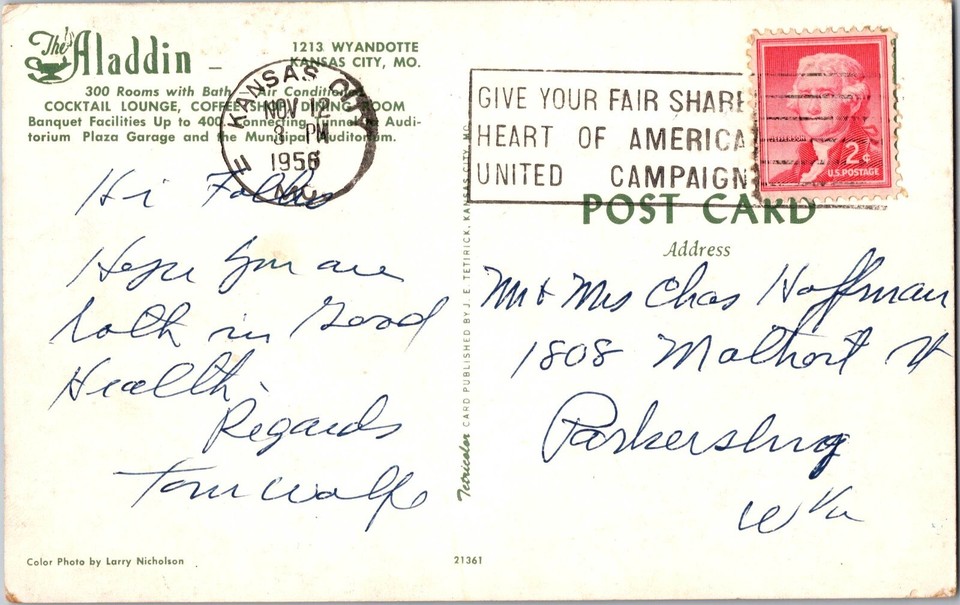 The Aladdin —
1213 WYANDOTTE
KANSAS CITY, MO.
300 Rooms with Bath Air Conditioned
COCKTAIL LOUNGE, COFFEE SHOP DINING ROOM
Banquet Facilities Up to 400 Connecting Tunnel to Audi-
torium Plaza Garage and the Municipal Auditorium.
KANSAS CITY
NOV 12
8 PM
1956
MO.
GIVE YOUR FAIR SHARE
HEART OF AMERICA
UNITED CAMPAIGN
2¢
U.S. POSTAGE
POST CARD
Address
Hi Folks
Hope you are
both in Good
Health.
Regards
Tom Wolfe
Mr & Mrs Chas Hoffman
1808 St
Parkersburg
W Va
Tetricolor CARD PUBLISHED BY J. E. TETIRICK, KANSAS CITY, MO.
Color Photo by Larry Nicholson
21361